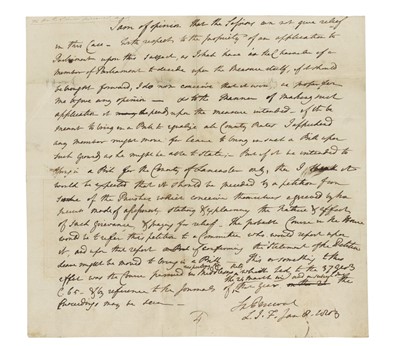 I am of opinion that the Justices can not give relief
in this Case - With respect to the propriety of an application to
Parliament upon this subject, as I shall have in the Character of a
Member of Parliament to decide upon the measure itself, if it should
be brought forward, I do not conceive that it would be proper for
me to give any opinion - As to the Manner of making such
application it depends upon the measure intended. If it be
meant to bring in a Bill to equalize all County Rates I apprehend
any member might move for Leave to bring in such a Bill upon
such Grounds as he might be able to state; But if it be intended to
bring in a Bill for the County of Lancaster only, then I think it
would be expected that it should be preceded by a petition from
some of the Parishes which conceive themselves aggrieved by the
present mode of assessment stating & explaining the Nature & effect
of such Grievance & praying for relief - The probable Course in the House
would be to refer this petition to a Committee who would report upon
it, and upon that report confirming the Statement of the Petition
leave might be moved to bring in a Bill. This or something to this
effect was the Course pursued in Middlesex which led to the 37 Geo 3
C 65. & by reference to the Journals of the year the
Proceedings may be seen -
Sp Perceval
L. I. F. Jan 8. 1803